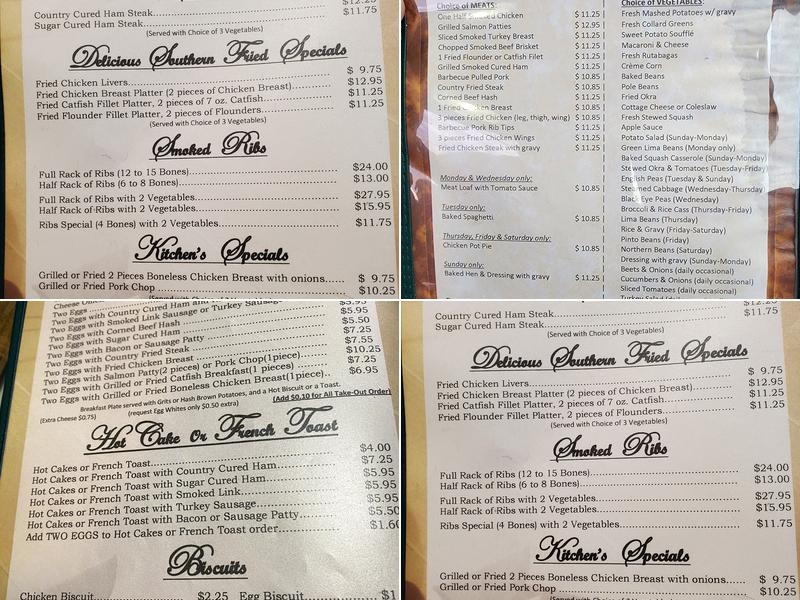 $12.25
Country Cured Ham Steak $11.75
Sugar Cured Ham Steak
(Served with Choice of 3 Vegetables)
Delicious Southern Fried Specials
Fried Chicken Livers $ 9.75
Fried Chicken Breast Platter (2 pieces of Chicken Breast) $12.95
Fried Catfish Fillet Platter, 2 pieces of 7 oz. Catfish $11.25
Fried Flounder Fillet Platter, 2 pieces of Flounders $11.25
(Served with Choice of 3 Vegetables)
Smoked Ribs
Full Rack of Ribs (12 to 15 Bones) $24.00
Half Rack of Ribs (6 to 8 Bones) $13.00
Full Rack of Ribs with 2 Vegetables $27.95
Half Rack of Ribs with 2 Vegetables $15.95
Ribs Special (4 Bones) with 2 Vegetables $11.75
Kitchen's Specials
Grilled or Fried 2 Pieces Boneless Chicken Breast with onions $ 9.75
Grilled or Fried Pork Chop $10.25
Choice of MEATS:
One Half Smoked Chicken $ 11.25
Grilled Salmon Patties $ 12.95
Sliced Smoked Turkey Breast $ 11.25
Chopped Smoked Beef Brisket $ 11.25
1 Fried Flounder or Catfish Filet $ 11.25
Grilled Smoked Cured Ham $ 11.25
Barbecue Pulled Pork $ 10.85
Country Fried Steak $ 10.85
Corned Beef Hash $ 10.85
1 Fried Chicken Breast $ 10.85
3 pieces Fried Chicken (leg, thigh, wing) $ 10.85
Barbecue Pork Rib Tips $ 10.85
3 pieces Fried Chicken Wings $ 10.85
Fried Chicken Steak with gravy $ 10.85
Monday & Wednesday only:
Meat Loaf with Tomato Sauce $ 10.85
Tuesday only:
Baked Spaghetti $ 10.85
Thursday, Friday & Saturday only:
Chicken Pot Pie $ 10.85
Sunday only:
Baked Hen & Dressing with gravy $ 11.25
Choice of VEGETABLES:
Fresh Mashed Potatoes w/ gravy
Fresh Collard Greens
Sweet Potato Soufflé
Macaroni & Cheese
Fresh Rutabagas
Crème Corn
Baked Beans
Pole Beans
Fried Okra
Cottage Cheese or Coleslaw
Fresh Stewed Squash
Apple Sauce
Potato Salad (Sunday-Monday)
Green Lima Beans (Monday only)
Baked Squash Casserole (Sunday-Monday)
Stewed Okra & Tomatoes (Tuesday-Friday)
English Peas (Tuesday & Sunday)
Steamed Cabbage (Wednesday-Thursday)
Black Eye Peas (Wednesday)
Broccoli & Rice Cass (Thursday-Friday)
Lima Beans (Thursday)
Rice & Gravy (Friday-Saturday)
Pinto Beans (Friday)
Northern Beans (Saturday)
Dressing with gravy (Sunday-Monday)
Beets & Onions (daily occasional)
Cucumbers & Onions (daily occasional)
Sliced Tomatoes (daily occasional)
Two Eggs with Country Cured Ham $5.95
Two Eggs with Smoked Link Sausage or Turkey Sausage $5.95
Two Eggs with Corned Beef Hash $5.50
Two Eggs with Sugar Cured Ham $7.25
Two Eggs with Bacon or Sausage Patty $7.55
Two Eggs with Country Fried Steak $10.25
Two Eggs with Fried Chicken Breast $7.25
Two Eggs with Salmon Patty(2 pieces) or Pork Chop(1piece) $6.95
Two Eggs with Grilled or Fried Catfish Breakfast(1 pieces)
Two Eggs with Grilled or Fried Boneless Chicken Breast(1piece)
Breakfast Plate served with Grits or Hash Brown Potatoes, and a Hot Biscuit or a Toast.
(Extra Cheese $0.75) (request Egg Whites only $0.50 extra) (Add $0.10 for All Take-Out Order)
Hot Cake or French Toast
Hot Cakes or French Toast $4.00
Hot Cakes or French Toast with Country Cured Ham $7.25
Hot Cakes or French Toast with Sugar Cured Ham $5.95
Hot Cakes or French Toast with Smoked Link $5.95
Hot Cakes or French Toast with Turkey Sausage $5.95
Hot Cakes or French Toast with Bacon or Sausage Patty $5.50
Add TWO EGGS to Hot Cakes or French Toast order $1.60
Biscuits
Chicken Biscuit $2.25 Egg Biscuit $1
$12.25
Country Cured Ham Steak $11.75
Sugar Cured Ham Steak
(Served with Choice of 3 Vegetables)
Delicious Southern Fried Specials
Fried Chicken Livers $ 9.75
Fried Chicken Breast Platter (2 pieces of Chicken Breast) $12.95
Fried Catfish Fillet Platter, 2 pieces of 7 oz. Catfish $11.25
Fried Flounder Fillet Platter, 2 pieces of Flounders $11.25
(Served with Choice of 3 Vegetables)
Smoked Ribs
Full Rack of Ribs (12 to 15 Bones) $24.00
Half Rack of Ribs (6 to 8 Bones) $13.00
Full Rack of Ribs with 2 Vegetables $27.95
Half Rack of Ribs with 2 Vegetables $15.95
Ribs Special (4 Bones) with 2 Vegetables $11.75
Kitchen's Specials
Grilled or Fried 2 Pieces Boneless Chicken Breast with onions $ 9.75
Grilled or Fried Pork Chop $10.25